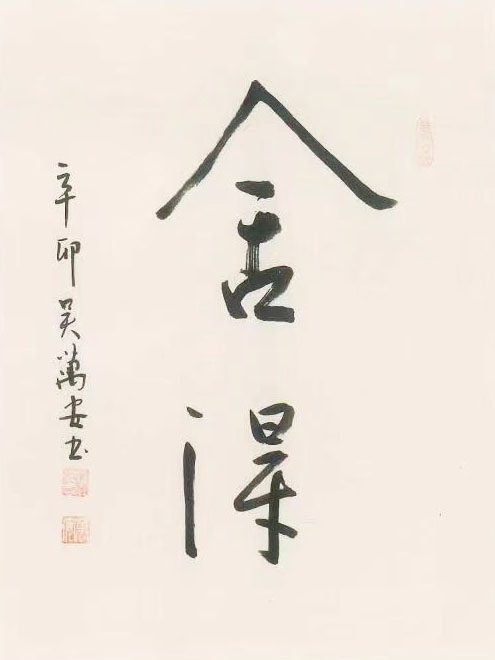 舍得
辛卯吴萬安书